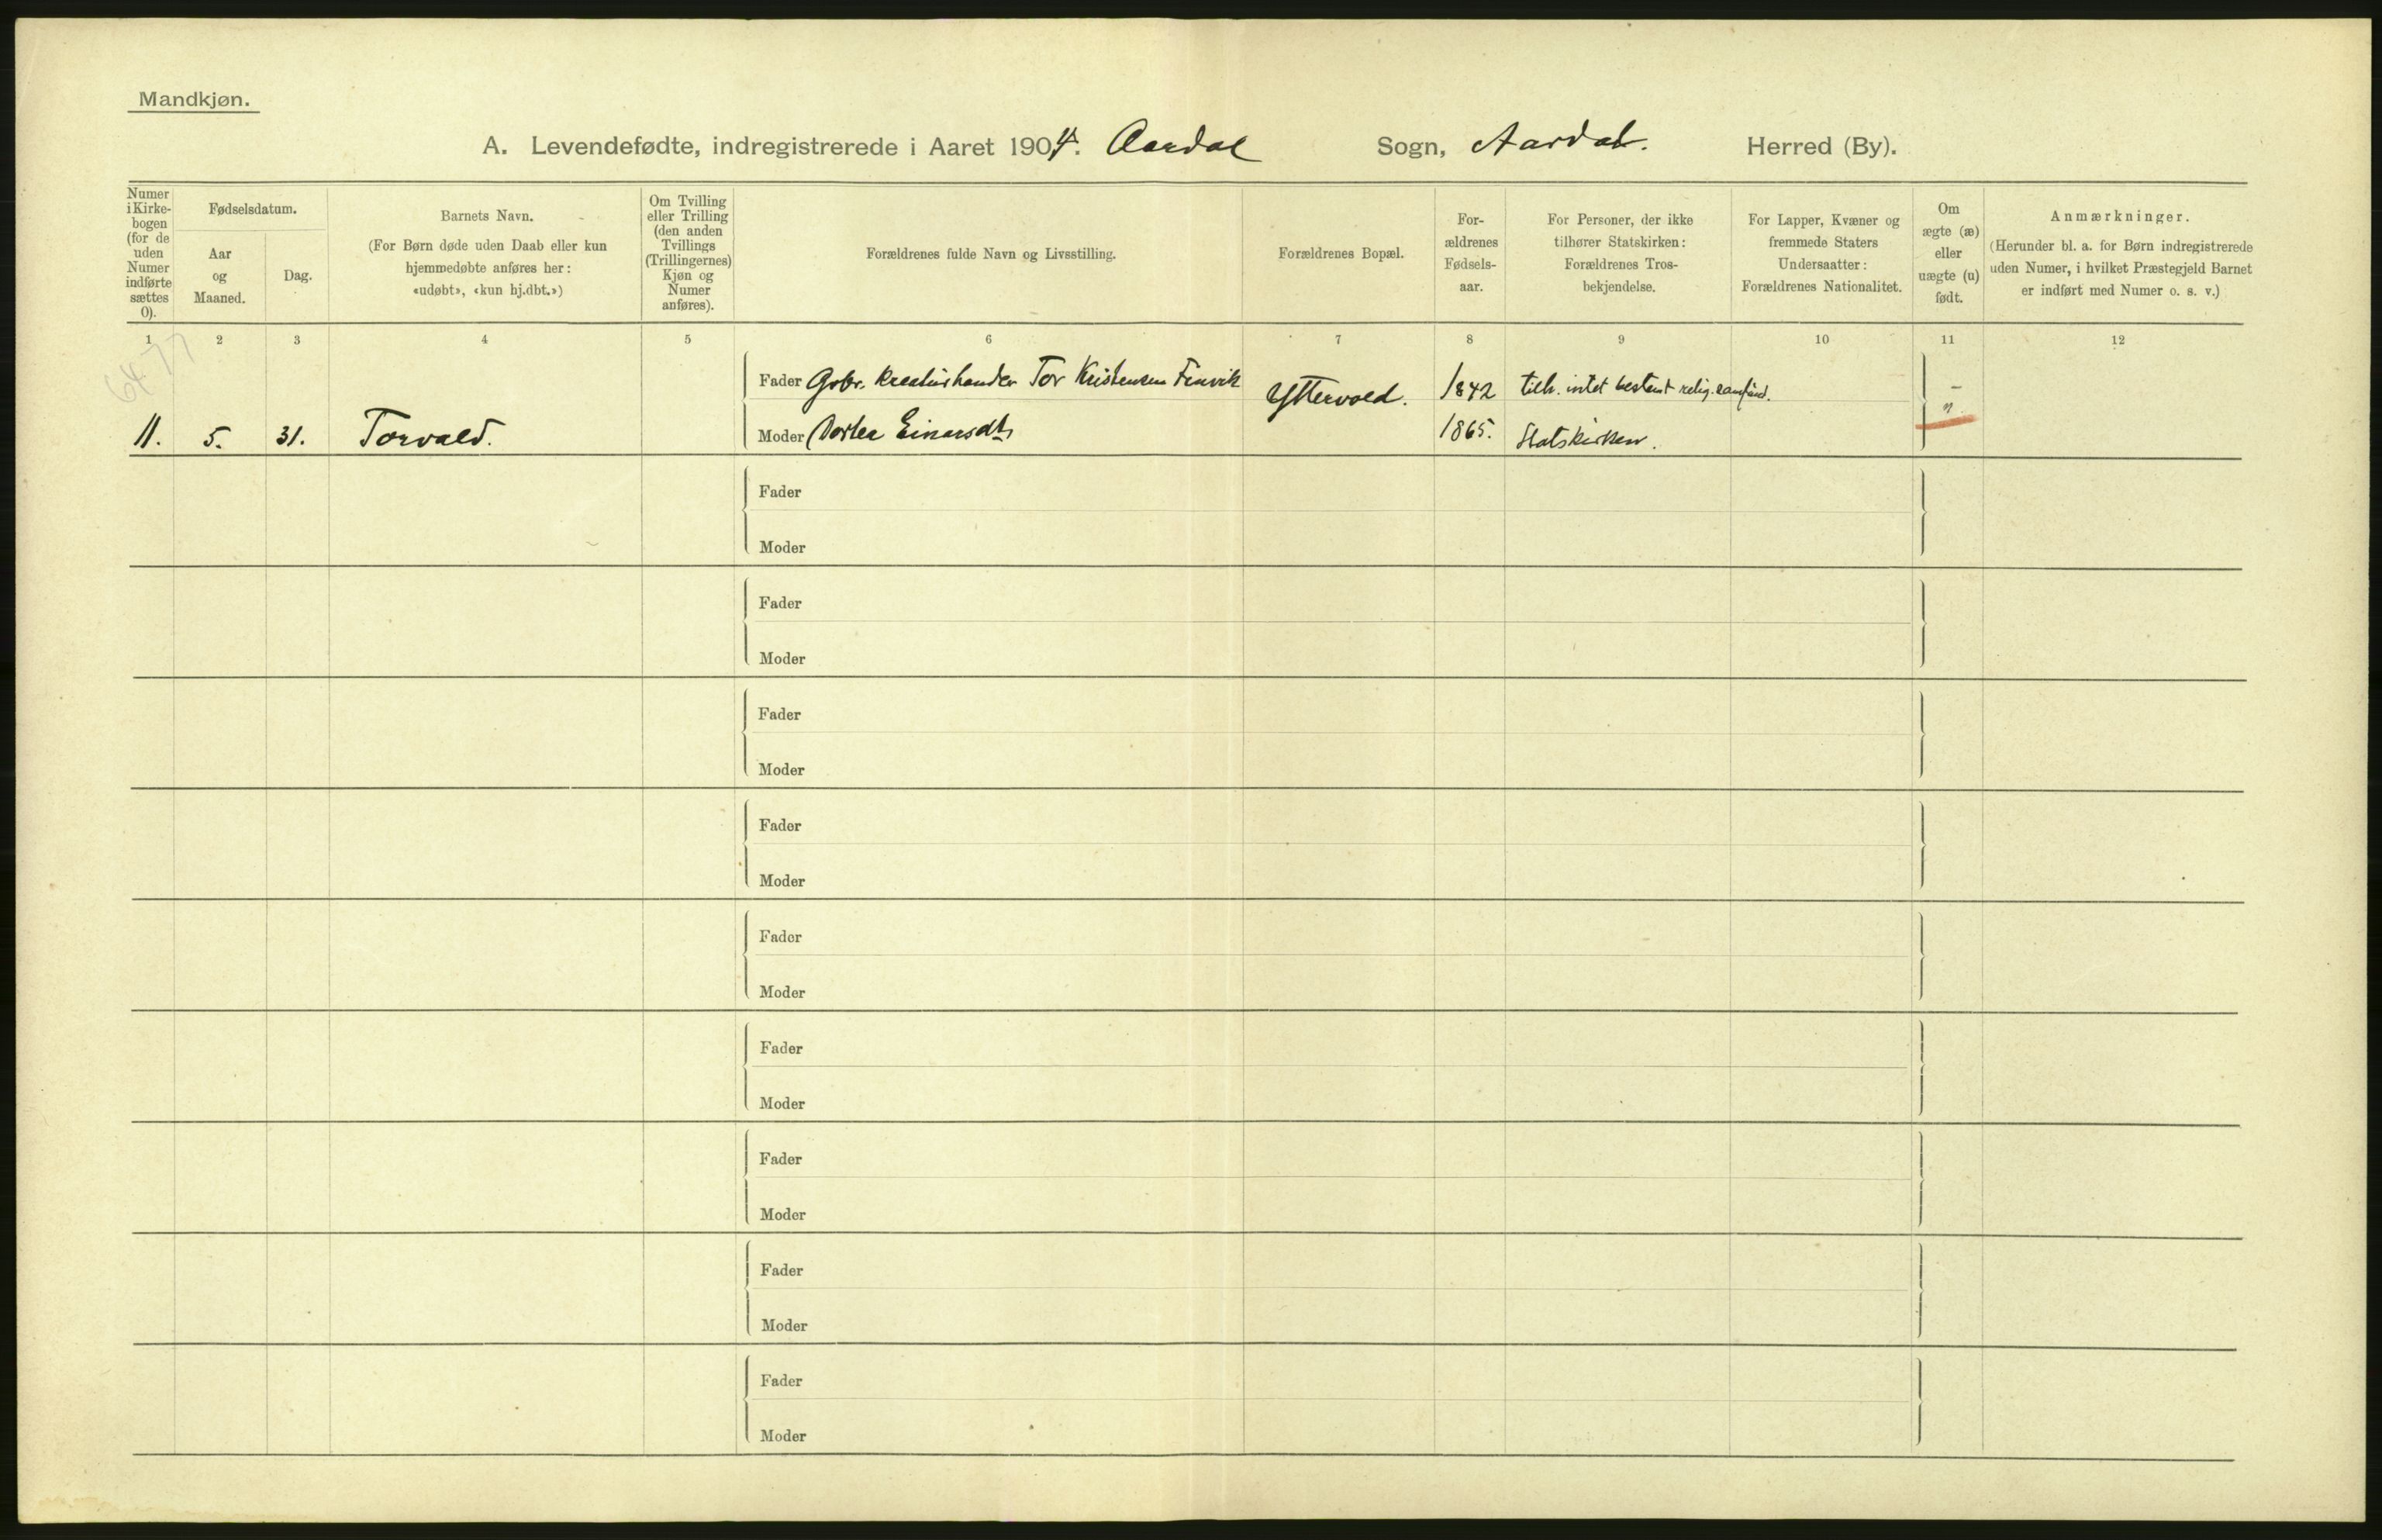 Mandkjøn.
A. Levendefødte, indregistrerede i Aaret 1904. Aardal Sogn, Aardal. Herred (By).
Numer
i Kirke-
bogen
(for de
uden
Numer
indførte
sættes
0).
Fødselsdatum.
Aar
og
Maaned.
Dag.
Barnets Navn.
(For Børn døde uden Daab eller kun
hjemmedøbte anføres her:
«udøbt», «kun hj.dbt.»)
Om Tvilling
eller Trilling
(den anden
Tvillings
(Trillingernes)
Kjøn og
Numer
anføres).
Forældrenes fulde Navn og Livsstilling.
Forældrenes Bopæl.
For-
ældrenes
Fødsels-
aar.
For Personer, der ikke
tilhører Statskirken:
Forældrenes Tros-
bekjendelse.
For Lapper, Kvæner og
fremmede Staters
Undersaatter:
Forældrenes Nationalitet.
Om
ægte (æ)
eller
uægte (u)
født.
Anmærkninger.
(Herunder bl. a. for Børn indregistrerede
uden Numer, i hvilket Præstegjeld Barnet
er indført med Numer o. s. v.)
1 2 3 4 5 6 7 8 9 10 11 12
6477
Fader Gbr. Kreaturhandler Tor Kristensen Yttervold. 1842 tilh. intet bestemt relig. samfund. –
11. 5. 31. Torvald. Moder Dortea Einarsdtr 1865. Statskirken.
Fader
Moder
Fader
Moder
Fader
Moder
Fader
Moder
Fader
Moder
Fader
Moder
Fader
Moder
Fader
Moder
Fader
Moder